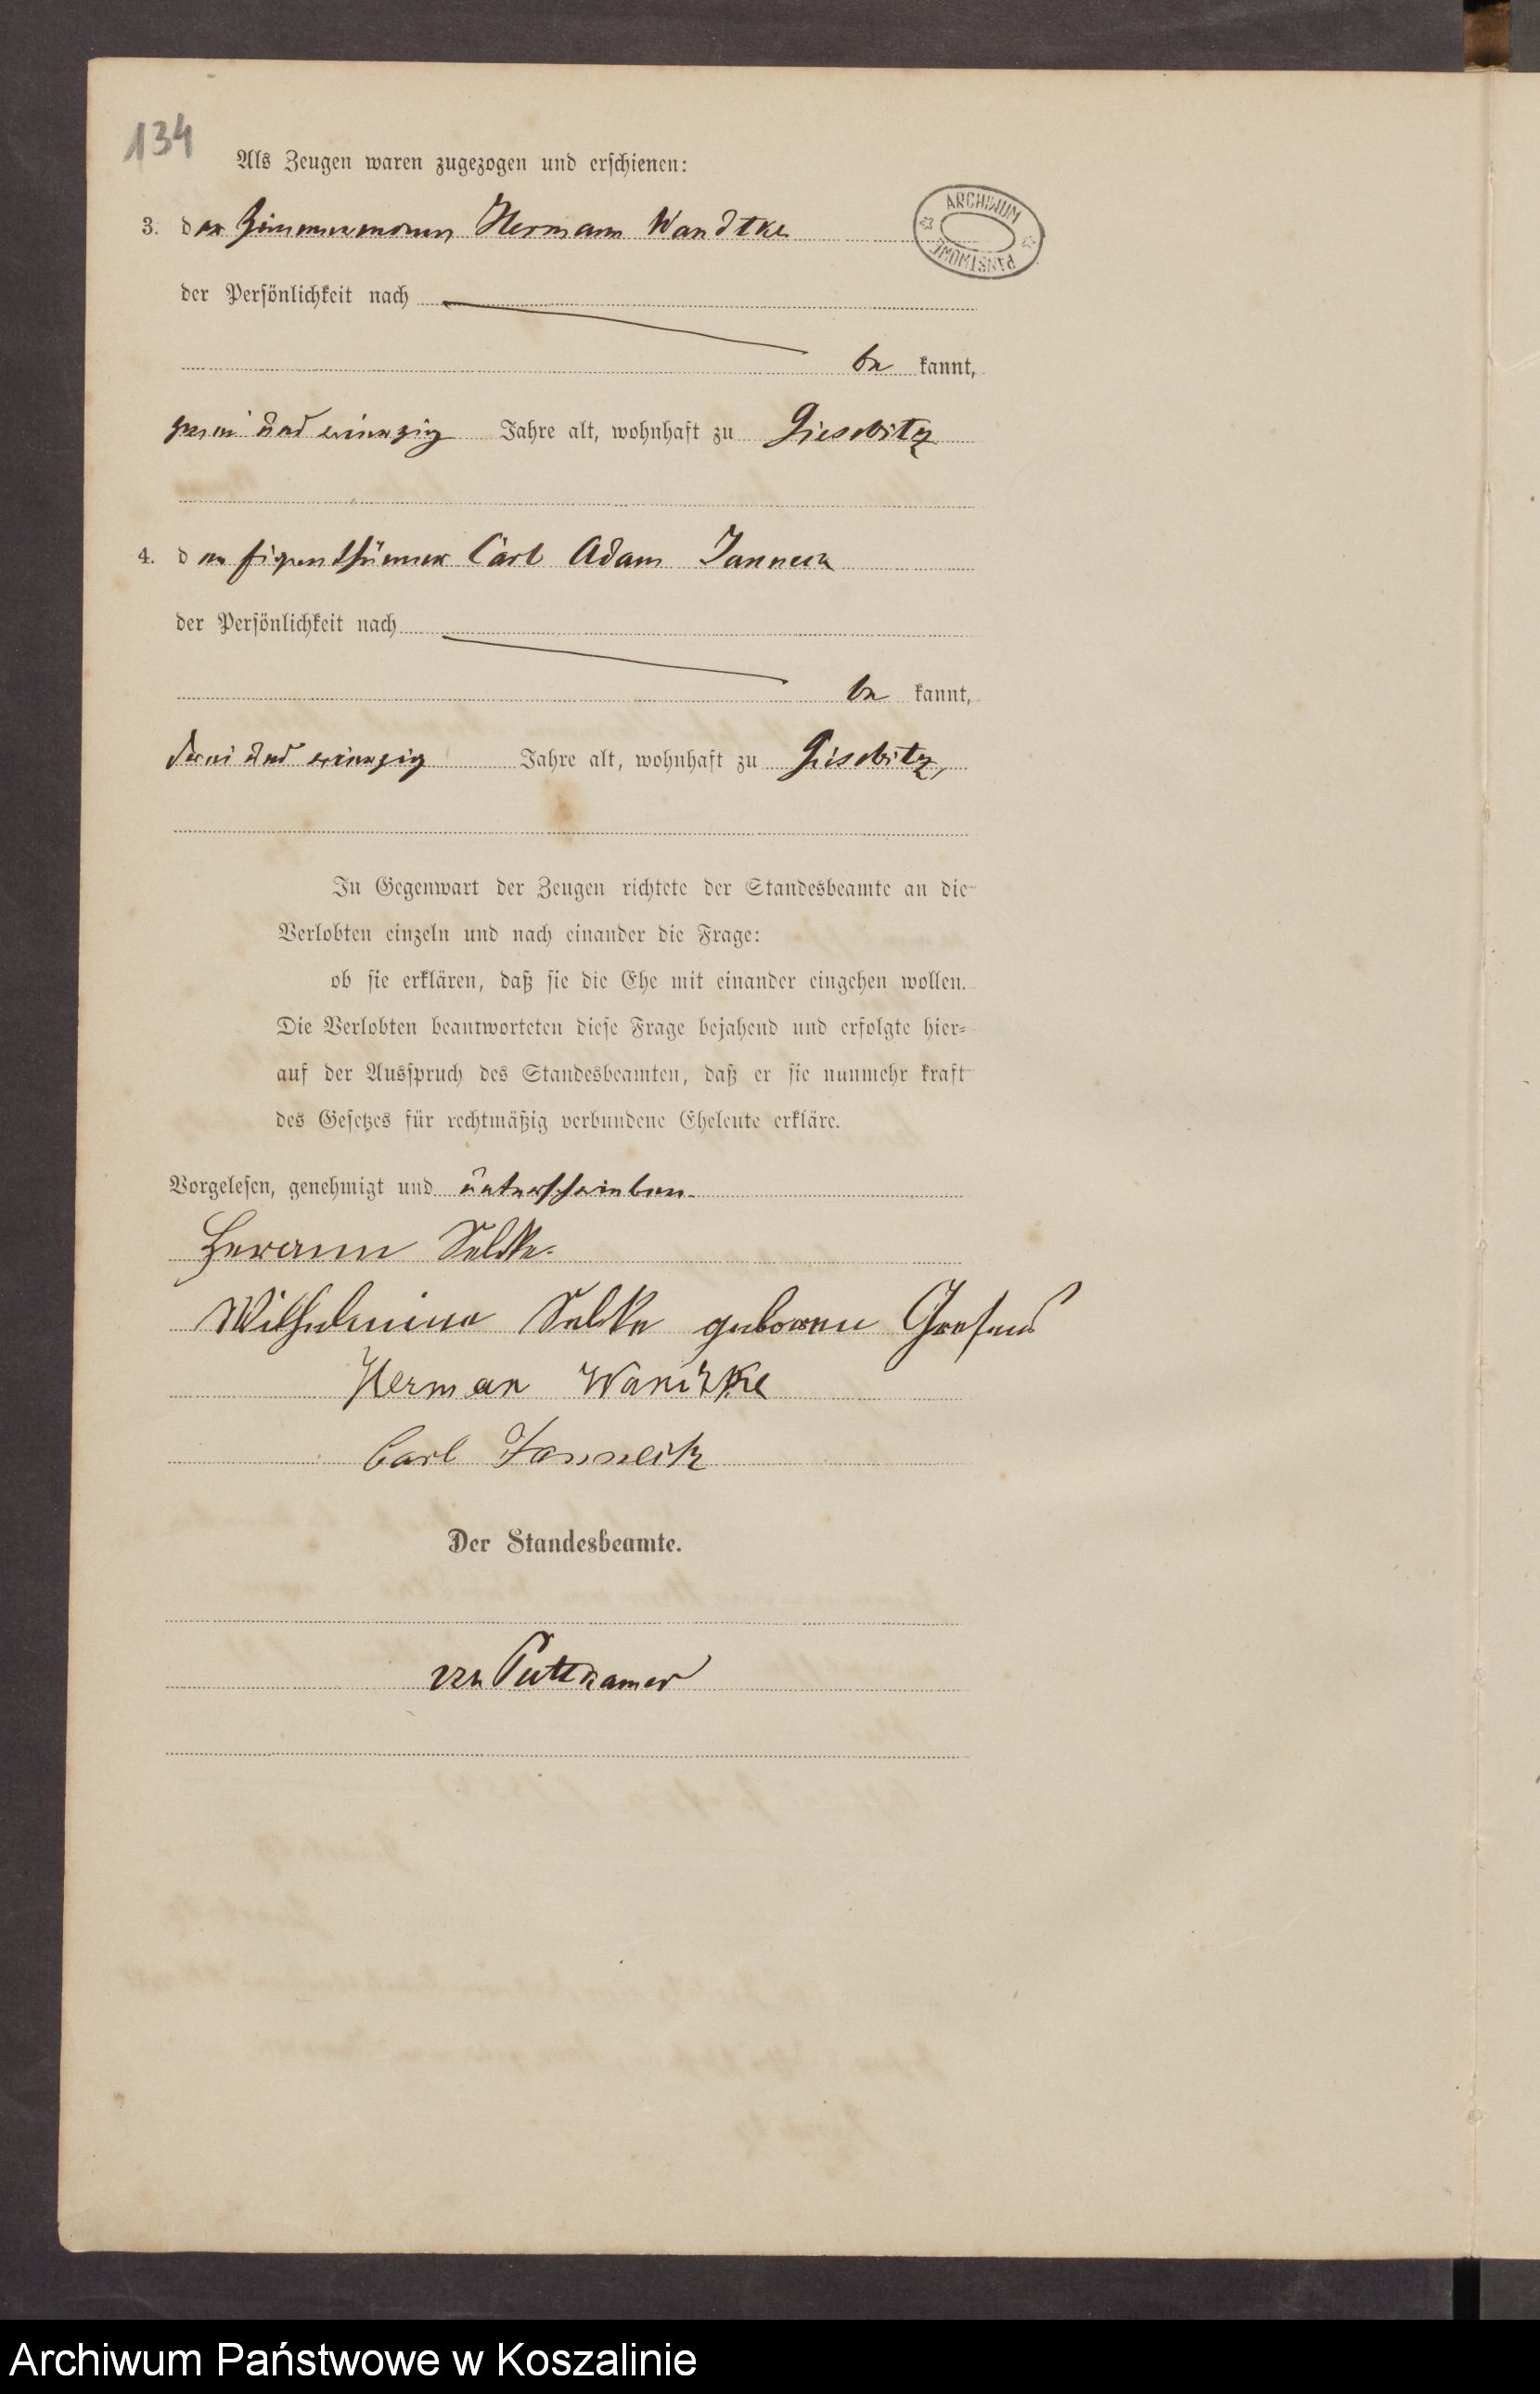 134
Als Zeugen waren zugezogen und erschienen:
3. der Zimmermann Hermann Wandtke
ARCHIWUM PAŃSTWOWE
der Persönlichkeit nach
be kannt,
zwei und vierzig Jahre alt, wohnhaft zu Giesebitz
4. der Eigenthümer Carl Adam Janneck
der Persönlichkeit nach
be kannt,
drei und vierzig Jahre alt, wohnhaft zu Giesebitz,
In Gegenwart der Zeugen richtete der Standesbeamte an die
Verlobten einzeln und nach einander die Frage:
ob sie erklären, daß sie die Ehe mit einander eingehen wollen.
Die Verlobten beantworteten diese Frage bejahend und erfolgte hier-
auf der Ausspruch des Standesbeamten, daß er sie nunmehr kraft
des Gesetzes für rechtmäßig verbundene Eheleute erkläre.
Vorgelesen, genehmigt und unterschrieben.
Hermann Selke.
Wilhelmine Selke geborene
Herman Wandtke
Carl Janneck
Der Standesbeamte.
von Puttkamer
Archiwum Państwowe w Koszalinie